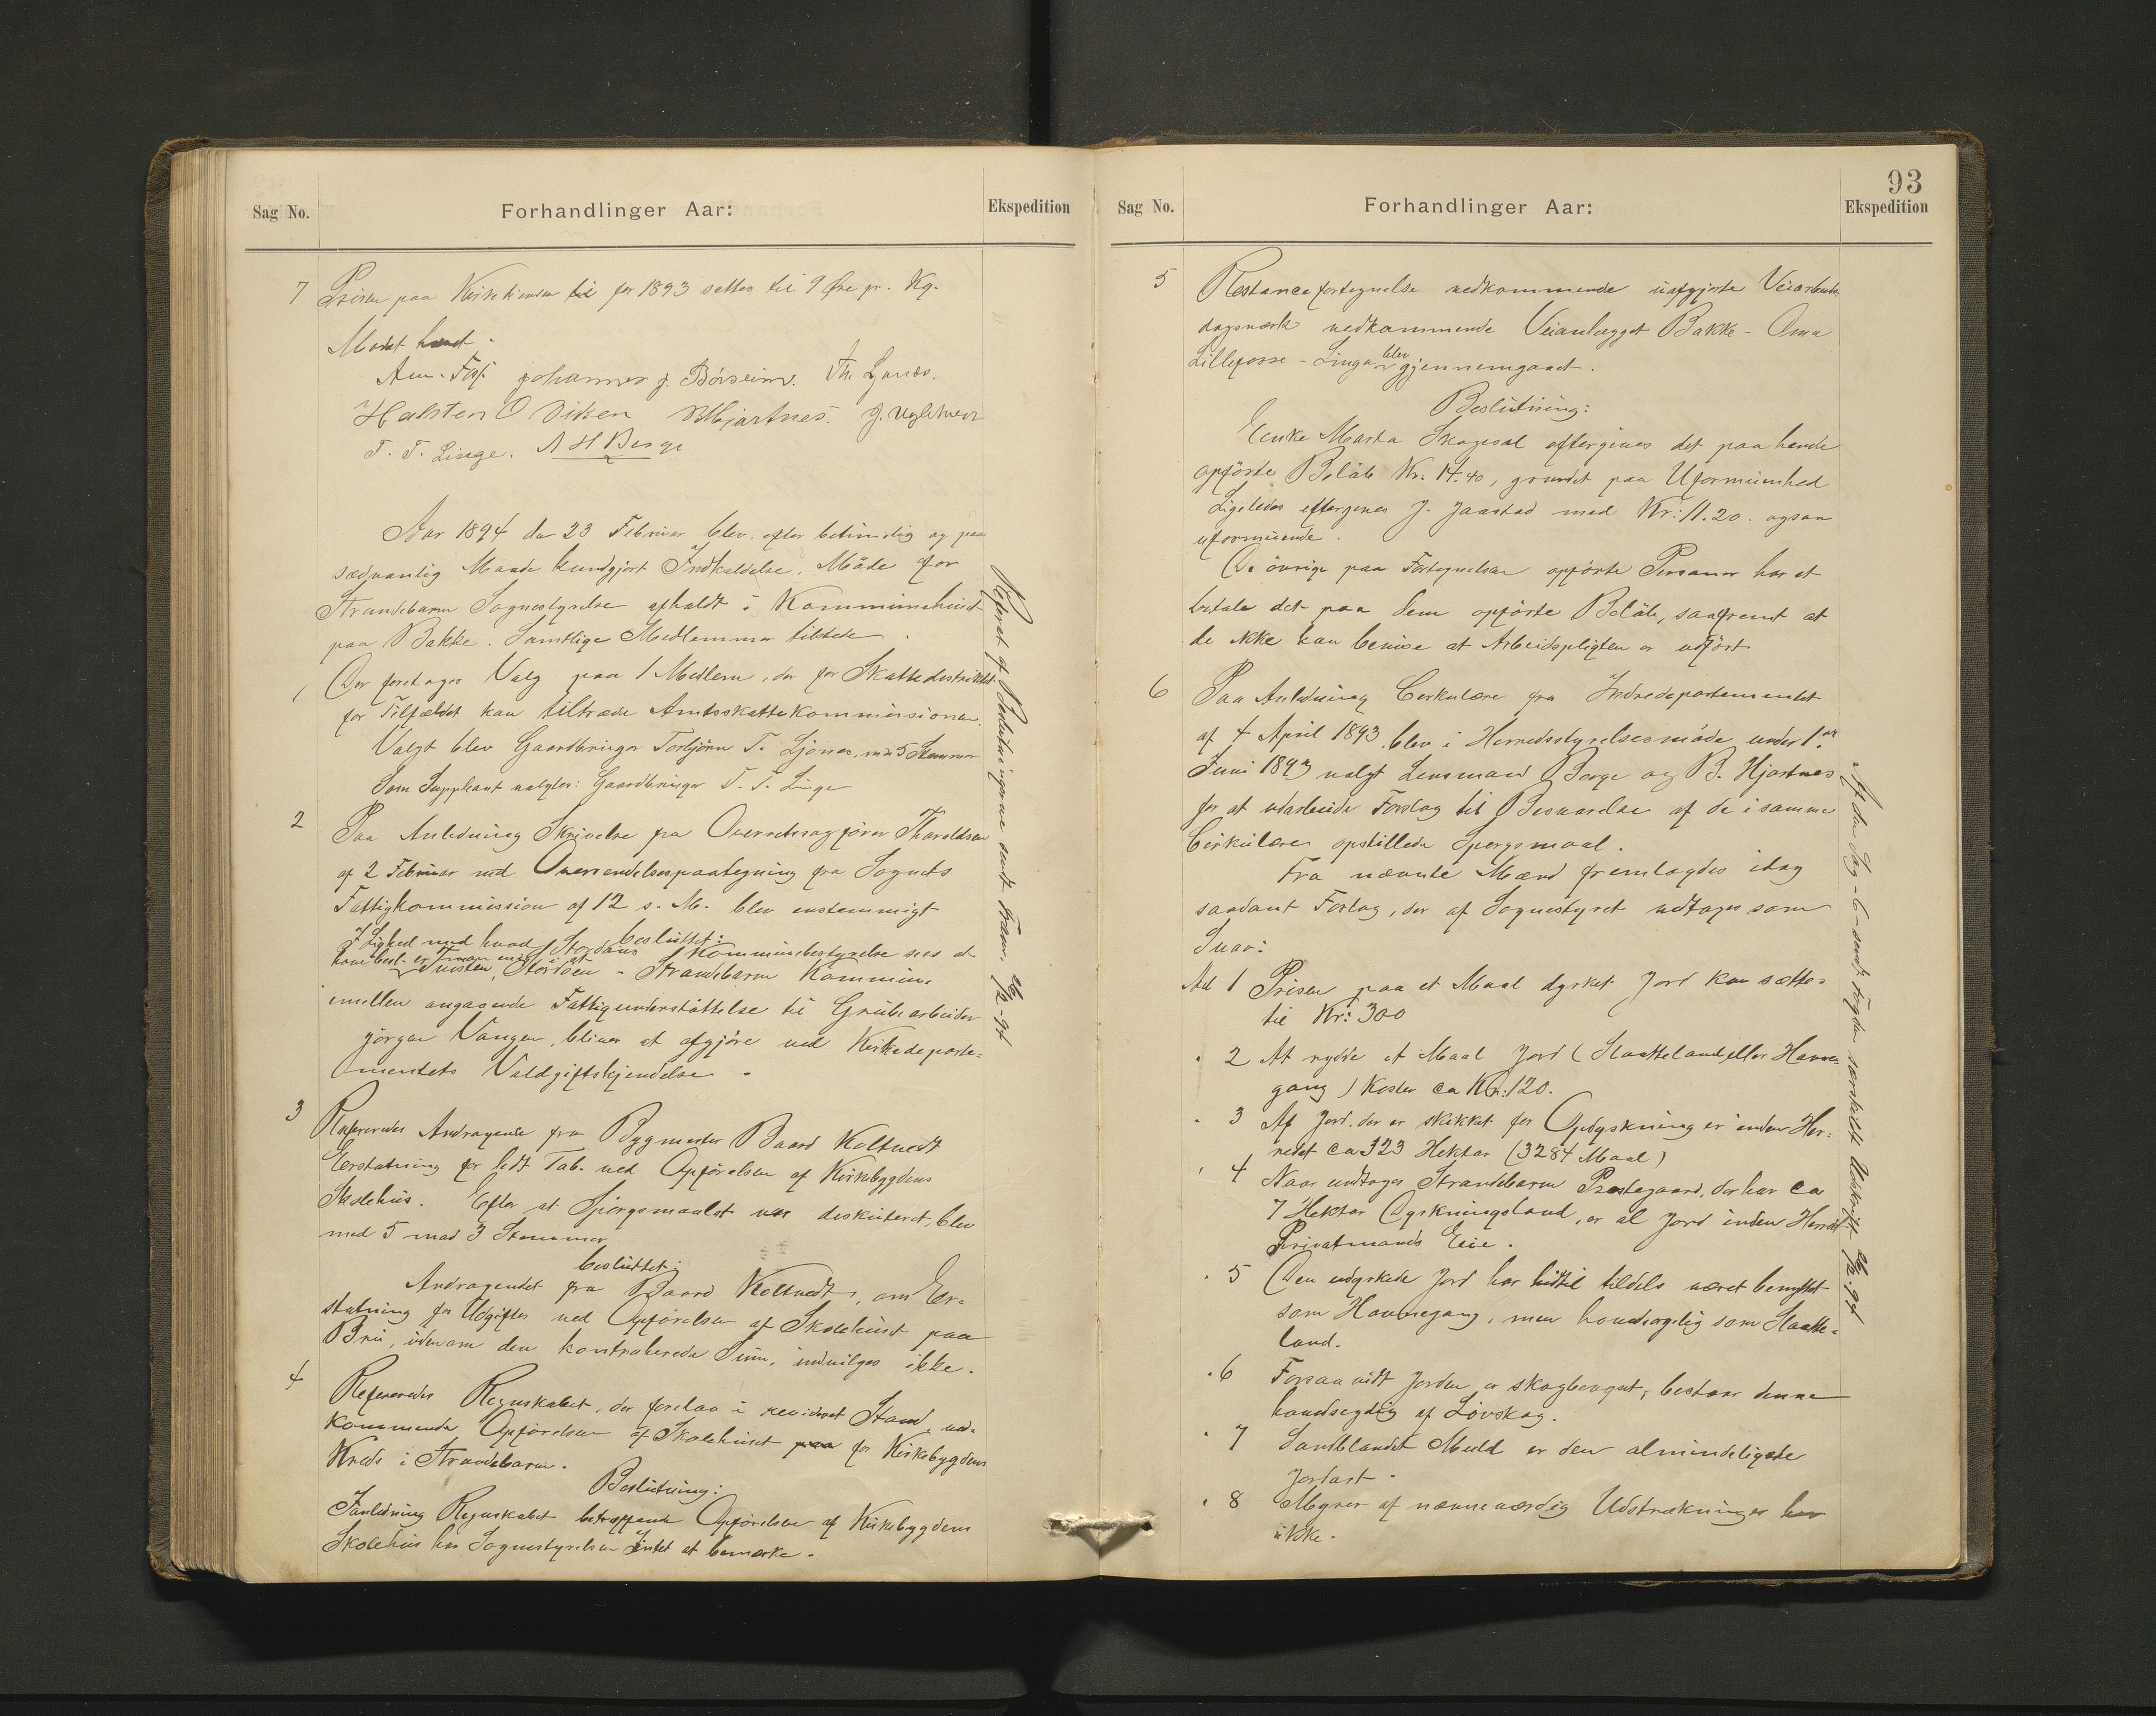 Sag No.
Forhandlinger Aar:
Ekspedition
7 Prisen paa Kirketienden for 1893 settes til 9 Øre pr. Kg.
Mødet hævet.
Johannes J. Børseim. Th. Ljones.
Halsten O Viken BHjartnes. J.
T. T. Linge. A H Berge
Aar 1894 den 23 Februar blev efter betimelig og paa
sædvanlig Maade kundgjort Indkaldelse, Møde for
Strandebarm Sognestyrelse afholdt i Kommunehuset
paa Bakke. Samtlige Medlemmer tilstede.
1 Der foretoges Valg paa 1 Medlem, der for Skattedistriktet
for Tilfældet kan tiltræde Amtsskattekommissionen.
Valgt blev Gaardbruger Torbjörn T. Ljones, med 5 Stemmer
Som Suppleant valgtes: Gaardbruger T. T. Linge
2 Paa Anledning Skrivelse fra Overretssagfører Tharaldsen
af 2 Februar med Oversendelsespaategning fra Sognets
Fattigkommission af 12 s. M. blev enstemmigt
besluttet:
I Lighed med hvad Stordøens Kommunebestyrelse sees at
have besl. er man enig i at
Tvisten, Stordøen - Strandebarm Kommune
imellem angaaende Fattigunderstøttelse til Grubearbeider
Jörgen Vangen, bliver at afgjöre ved Kirkedeparte-
mentets Voldgiftskjendelse.
3 Refereredes Andragende fra Bygmester Baard Koltvedt
Erstatning for lidt Tab ved Opförelsen af Kirkebygdens
Skolehus. Efter at Spörgsmaalet var diskuteret, blev
med 5 mod 3 Stemmer
besluttet:
Andragendet fra Baard Koltvedt, om Er-
statning for Udgifter ved Opförelsen af Skolehuset paa
Bru, udenom den kontraherede Sum, indvilges ikke.
4 Refereredes Regnskabet, der forelaa i revideret Stand, ved-
kommende Opförelsen af Skolehuset paa for Kirkebygdens
Kreds i Strandebarm.
Beslutning:
I anledning Regnskabet betræffende Opförelsen af Kirkebygdens
Skolehus har Sognestyrelsen Intet at bemærke.
Referat af Beslutningerne sendt 26/2-94
93
Sag No.
Forhandlinger Aar:
Ekspedition
5 Restancefortegnelse vedkommende uafgjorte Veiarbeids-
dagsværk vedkommende Veianlægget Bakke - Oma
Lillefosse - Linga blev gjennemgaaet.
Beslutning:
Enke Marta Skogseal eftergives det paa hende
opförte Belöb Kr: 14.40, grundet paa Uformuenhed
Ligeledes eftergives J. Jaastad med Kr: 11.20. ogsaa
uformuende.
De övrige paa Fortegnelsen opförte Personer har at
betale det paa dem opförte Belöb, saafremt at
de ikke kan bevise at Arbeidspligten er udfört
6 Paa Anledning Cerkulære fra Indredepartementet
af 4 April 1893, blev i Herredsstyrelsesmöde under 1ste
Juni 1893 valgt Lensmand Berge og B. Hjartnes
for at udarbeide Forslag til Besvarelse af de i samme
Cirkulære opstillede Spørgsmaal.
Fra nævnte Mænd fremlagdes idag
saadant Forslag, der af Sognestyret vedtoges som
Svar:
Ad 1 Prisen paa et Maal dyrket Jord kan sættes
til Kr: 300
" 2 At rydde et Maal Jord (Slaatteland eller Havne-
gang) koster ca Kr: 120.
" 3 Af Jord, der er skikket for Opdyrkning er inden Her-
redet ca 323 Hektar (3284 Maal)
" 4 Naar undtages Strandebarm Prestegaard, der har ca
7 Hektar Dyrkningsland, er al Jord inden Herredet
Privatmands Eie.
" 5 Den udyrkede Jord har hidtil tildels været benyttet
som Havnegang, men hovedsagelig som Slaatte-
land.
" 6 Forsaavidt Jorden er skogbevoxet, bestaar denne
hovedsagelig af Lövskog.
" 7 Sandblandet Muld er den almindeligste
Jordart.
" 8 Myrer af nævneværdig Udstrækninger har
ikke.
Af den Sag - 6 - sendt Fogden særskilt Udskrift 26/2-94